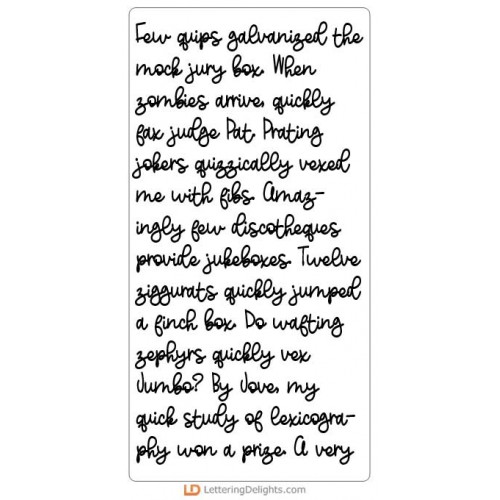 Few quips galvanized the
mock jury box. When
zombies arrive, quickly
fax judge Pat. Prating
jokers quizzically vexed
me with fibs. Amaz-
ingly few discotheques
provide jukeboxes. Twelve
ziggurats quickly jumped
a finch box. Do wafting
zephyrs quickly vex
Jumbo? By Jove, my
quick study of lexicogra-
phy won a prize. A very
LD LetteringDelights.com